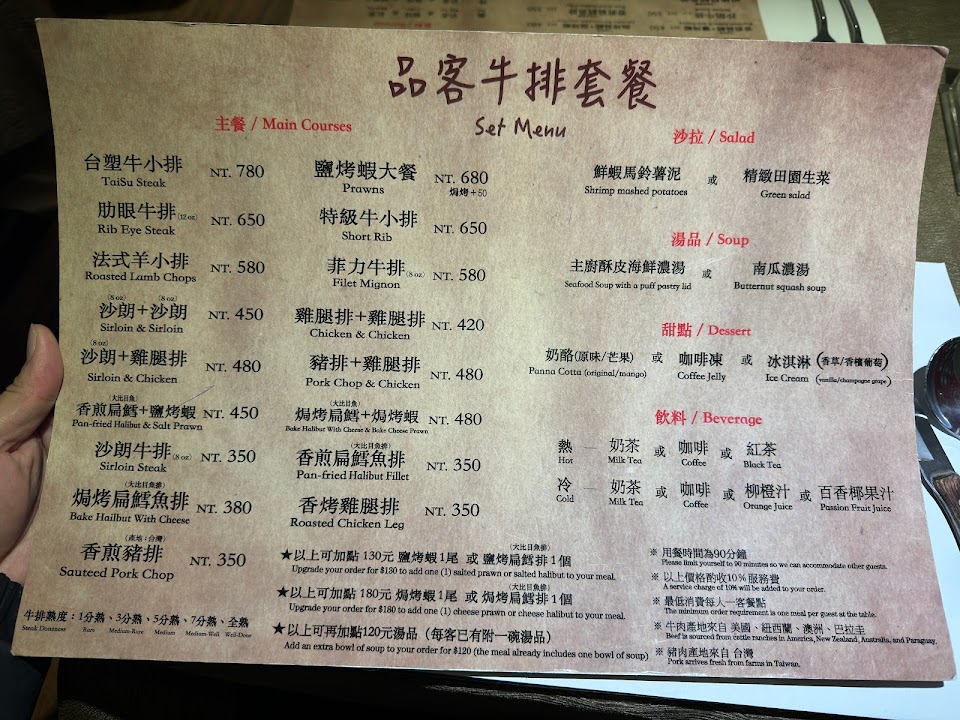 品客牛排套餐
Set Menu
主餐 / Main Courses
台塑牛小排 NT. 780
TaiSu Steak
肋眼牛排(12 oz) NT. 650
Rib Eye Steak
法式羊小排 NT. 580
Roasted Lamb Chops
(8 oz) (8 oz)
沙朗+沙朗 NT. 450
Sirloin & Sirloin
(8 oz)
沙朗+雞腿排 NT. 480
Sirloin & Chicken
(大比目魚)
香煎扁鱈+鹽烤蝦 NT. 450
Pan-fried Halibut & Salt Prawn
沙朗牛排(8 oz) NT. 350
Sirloin Steak
(大比目魚排)
焗烤扁鱈魚排 NT. 380
Bake Hailbut With Cheese
(產地:台灣)
香煎豬排 NT. 350
Sauteed Pork Chop
牛排熟度:1分熟、3分熟、5分熟、7分熟、全熟
Steak Doneness Rare Medium-Rare Medium Medium-Well Well-Done
鹽烤蝦大餐 NT. 680
Prawns 焗烤+50
特級牛小排 NT. 650
Short Rib
菲力牛排(8 oz) NT. 580
Filet Mignon
雞腿排+雞腿排 NT. 420
Chicken & Chicken
豬排+雞腿排 NT. 480
Pork Chop & Chicken
(大比目魚)
焗烤扁鱈+焗烤蝦 NT. 480
Bake Halibut With Cheese & Bake Cheese Prawn
(大比目魚排)
香煎扁鱈魚排 NT. 350
Pan-fried Halibut Fillet
香烤雞腿排 NT. 350
Roasted Chicken Leg
(大比目魚排)
★以上可加點 130元 鹽烤蝦1尾 或 鹽烤扁鱈排1個
Upgrade your order for $130 to add one (1) salted prawn or salted halibut to your meal.
(大比目魚排)
★以上可加點 180元 焗烤蝦1尾 或 焗烤扁鱈排1個
Upgrade your order for $180 to add one (1) cheese prawn or cheese halibut to your meal.
★以上可再加點120元湯品(每客已有附一碗湯品)
Add an extra bowl of soup to your order for $120 (the meal already includes one bowl of soup)
沙拉 / Salad
鮮蝦馬鈴薯泥 或 精緻田園生菜
Shrimp mashed potatoes Green salad
湯品 / Soup
主廚酥皮海鮮濃湯 或 南瓜濃湯
Seafood Soup with a puff pastry lid Butternut squash soup
甜點 / Dessert
奶酪(原味/芒果) 或 咖啡凍 或 冰淇淋(香草/香檳葡萄)
Panna Cotta (original/mango) Coffee Jelly Ice Cream (vanilla/champagne grape)
飲料 / Beverage
熱 — 奶茶 或 咖啡 或 紅茶
Hot Milk Tea Coffee Black Tea
冷 — 奶茶 或 咖啡 或 柳橙汁 或 百香椰果汁
Cold Milk Tea Coffee Orange Juice Passion Fruit Juice
※ 用餐時間為90分鐘
Please limit yourself to 90 minutes so we can accommodate other guests.
※ 以上價格酌收10%服務費
A service charge of 10% will be added to your order.
※ 最低消費每人一客餐點
The minimum order requirement is one meal per guest at the table.
※ 牛肉產地來自 美國、紐西蘭、澳洲、巴拉圭
Beef is sourced from cattle ranches in America, New Zealand, Australia, and Paraguay.
※ 豬肉產地來自 台灣
Pork arrives fresh from farms in Taiwan.